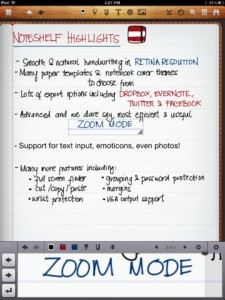 iPad
4:07 PM
NOTESHELF HIGHLIGHTS
- Smooth & natural handwriting in RETINA RESOLUTION
- Many paper templates & notebook cover themes
to choose from
- Lots of export options including DROPBOX, EVERNOTE,
TWITTER & FACEBOOK
- Advanced and we dare say, most efficient & useful
ZOOM MODE
- Support for text input, emoticons, even photos!
- Many more features including:
• full screen finder
• grouping & password protection
• cut/copy/paste
• margins
• wrist protection
• VGA output support
ZOOM MODE